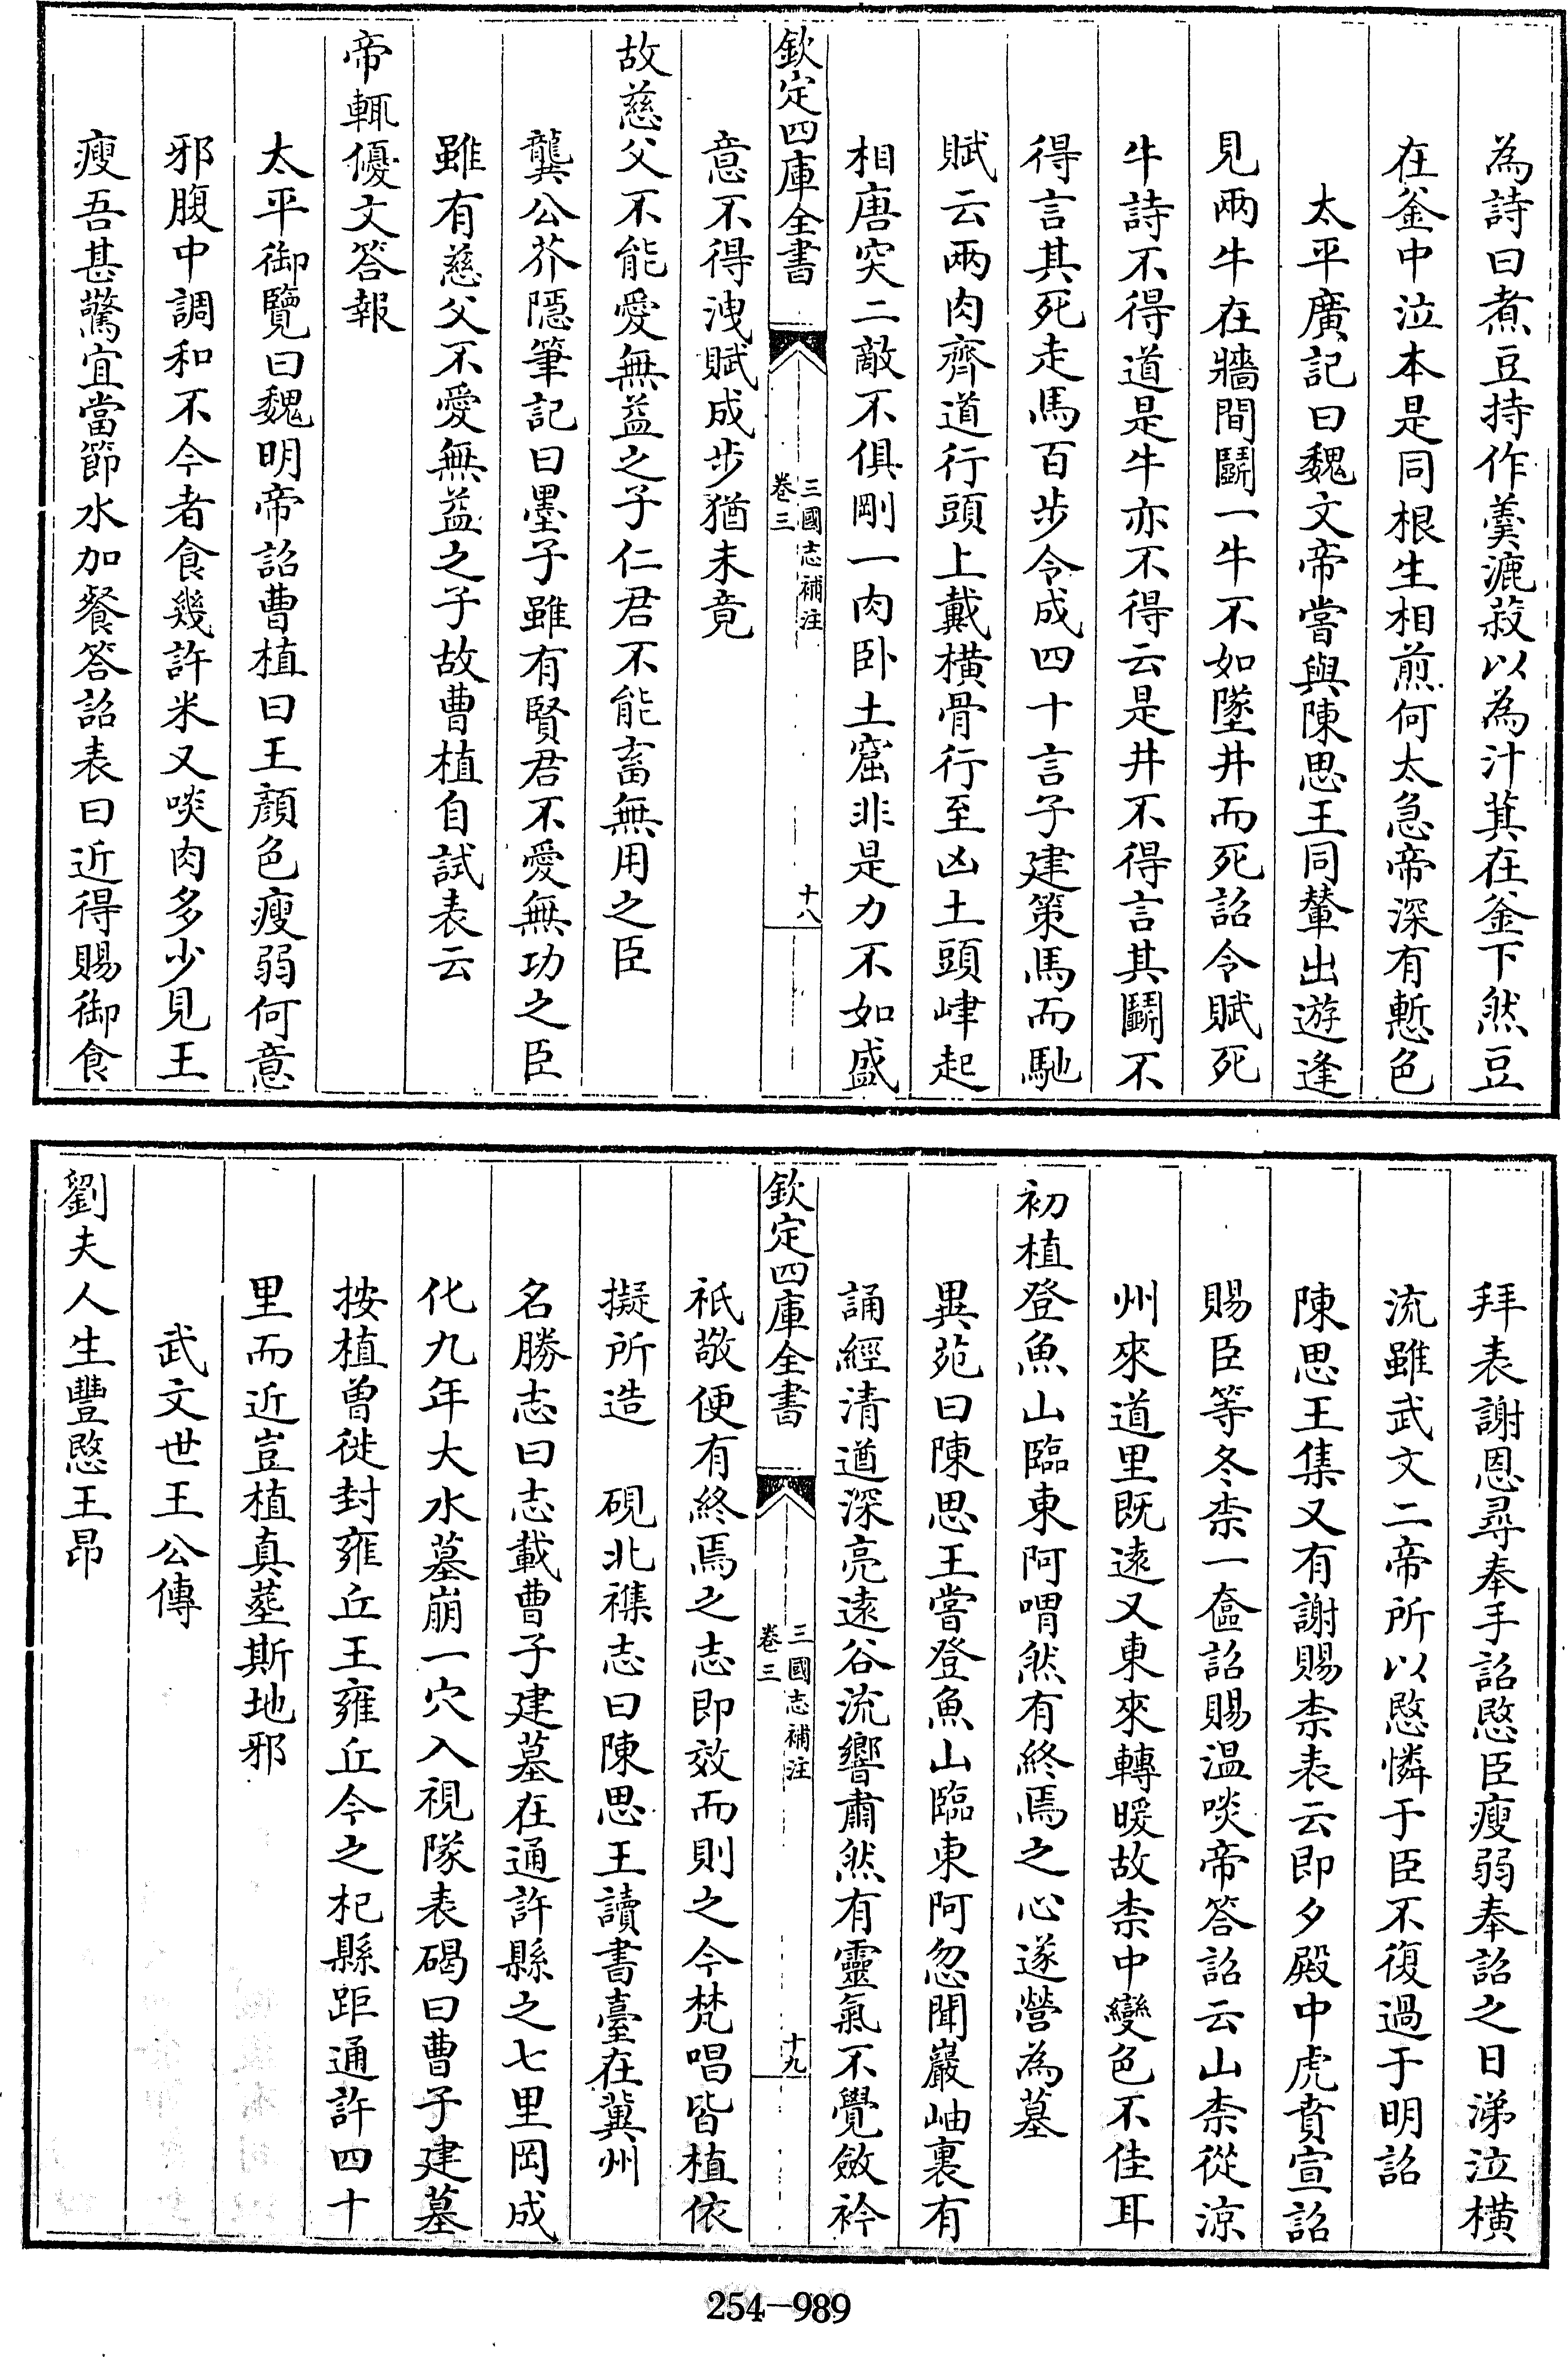 為詩曰煮豆持作羹漉菽以為汁萁在釜下然豆
在釜中泣本是同根生相煎何太急帝深有慙色
太平廣記曰魏文帝嘗與陳思王同輦出遊逢
見兩牛在牆間鬭一牛不如墜井而死詔令賦死
牛詩不得道是牛亦不得云是井不得言其鬭不
得言其死走馬百步令成四十言子建策馬而馳
賦云兩肉齊道行頭上戴橫骨行至凶土頭峍起
相唐突二敵不俱剛一肉卧土窟非是力不如盛
欽定四庫全書
三國志補注
卷三
十八
意不得洩賦成步猶未竟
故慈父不能愛無益之子仁君不能畜無用之臣
龔公芥隱筆記曰墨子雖有賢君不愛無功之臣
雖有慈父不愛無益之子故曹植自試表云
帝輒優文答報
太平御覽曰魏明帝詔曹植曰王顏色瘦弱何意
邪腹中調和不今者食幾許米又啖肉多少見王
瘦吾甚驚宜當節水加餐答詔表曰近得賜御食
拜表謝恩尋奉手詔愍臣瘦弱奉詔之日涕泣橫
流雖武文二帝所以愍憐于臣不復過于明詔
陳思王集又有謝賜柰表云即夕殿中虎賁宣詔
賜臣等冬柰一奩詔賜温啖帝答詔云山柰從涼
州來道里既遠又東來轉暖故柰中變色不佳耳
初植登魚山臨東阿喟然有終焉之心遂營為墓
異苑曰陳思王嘗登魚山臨東阿忽聞巖岫裏有
誦經清遒深亮遠谷流響肅然有靈氣不覺斂衿
欽定四庫全書
三國志補注
卷三
十九
祇敬便有終焉之志即效而則之今梵唱皆植依
擬所造　硯北襍志曰陳思王讀書臺在冀州
名勝志曰志載曹子建墓在通許縣之七里岡成
化九年大水墓崩一穴入視隊表碣曰曹子建墓
按植曾徙封雍丘王雍丘今之杞縣距通許四十
里而近豈植真塟斯地邪
武文世王公傳
劉夫人生豐愍王昂
254—989